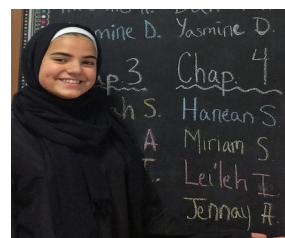 mine D. Yasmine D.
ap. 3 Chap. 4
h S. Hanean S
A Miriam S
Leileh I
Jennay A.